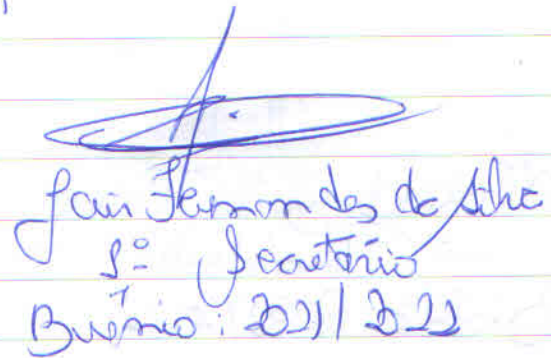 Jair Fernandes da Silva
1º Secretário
Biênio: 2021/2022